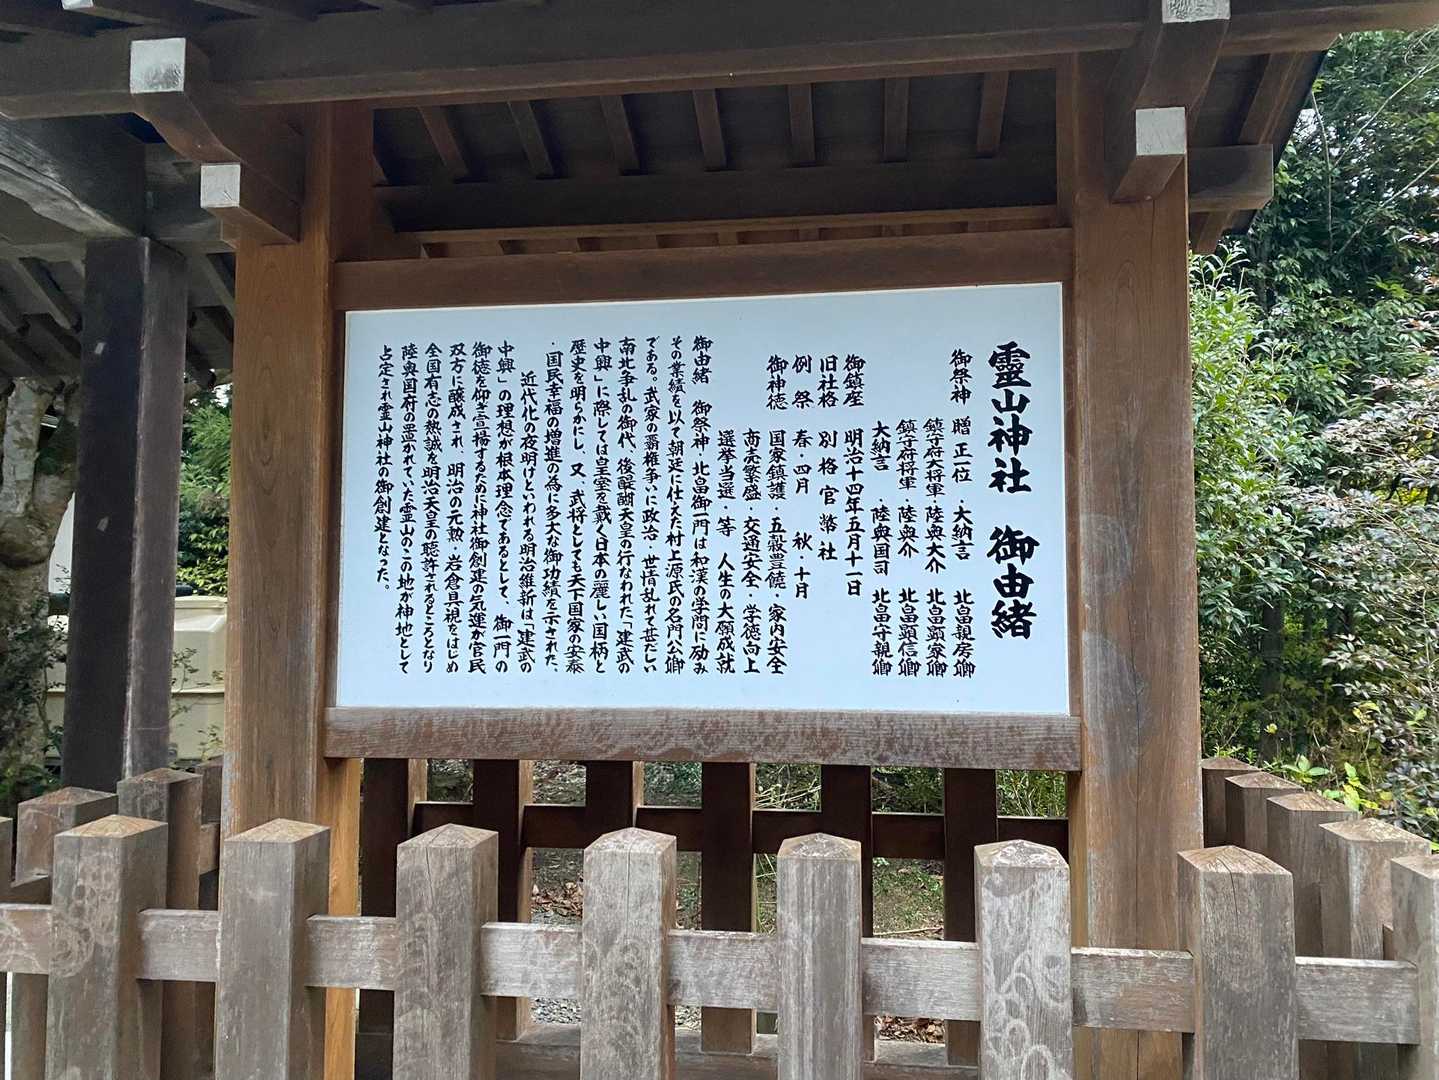 霊山神社　御由緒
御祭神　贈正一位・大納言　北畠親房卿
鎮守府大将軍・陸奥大介　北畠顕家卿
鎮守府将軍・陸奥介　北畠顕信卿
大納言・陸奥国司　北畠守親卿
御鎮座　明治十四年五月十一日
旧社格　別格官幣社
例祭　春・四月　秋・十月
御神徳　国家鎮護・五穀豊饒・家内安全
商売繁盛・交通安全・学徳向上
選挙当選・等　人生の大願成就
御由緒　御祭神・北畠御一門は和漢の学問に励み
その業績を以て朝廷に仕えた村上源氏の名門公卿
である。武家の覇権争いに政治・世情乱れて甚だしい
南北争乱の御代、後醍醐天皇の行なわれた「建武の
中興」に際しては皇室を戴く日本の麗しい国柄と
歴史を明らかにし、又、武将としても天下国家の安泰
・国民幸福の増進の為に多大な御功績を示された、
近代化の夜明けといわれる明治維新は「建武の
中興」の理想が根本理念であるとして、御一門の
御徳を仰ぎ宣揚するために神社御創建の気運が官民
双方に醸成され、明治の元勲・岩倉具視をはじめ
全国有志の熱誠を明治天皇の聴許されるところとなり
陸奥国府の置かれていた霊山のこの地が神地として
占定され霊山神社の御創建となった。